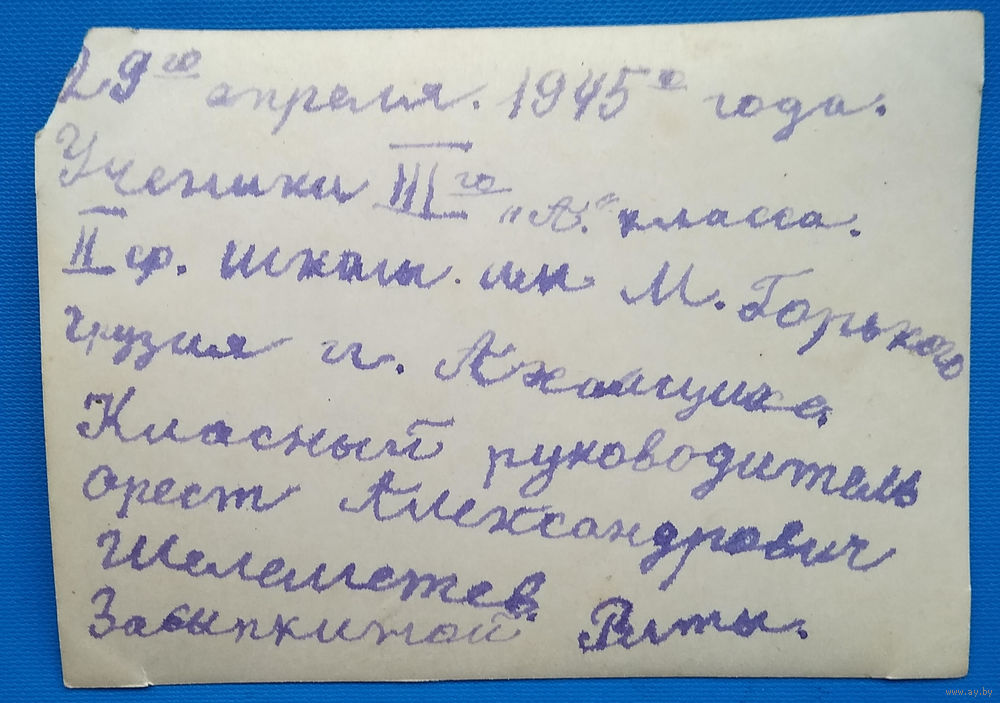 29го апреля. 1945о года.
Ученики IIIго "А." класса.
II ср. школы. им М. Горького
Грузия г. Ахалцихе.
Класный руководитель
Орест Александрович
Засыпкиной Риты.
www.ay.by